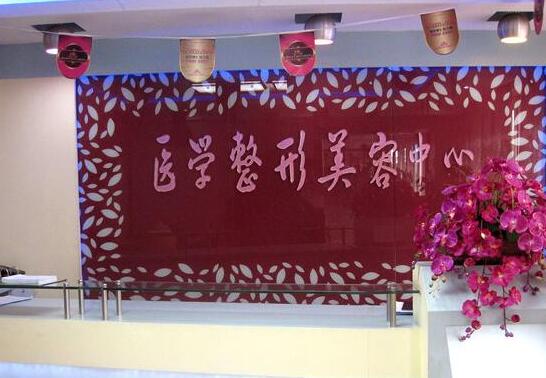 医学整形美容中心